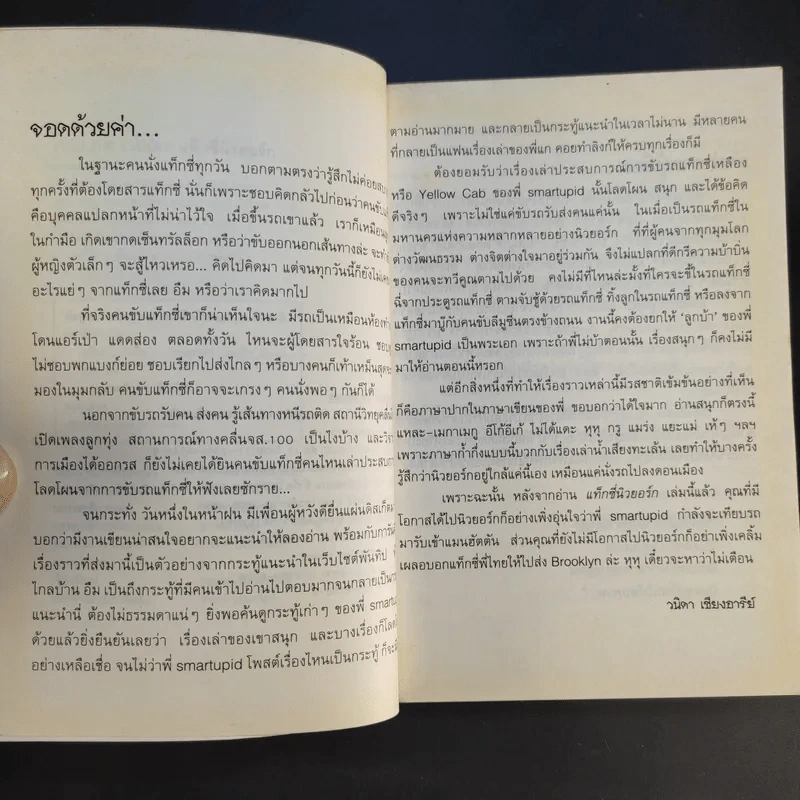 จอดด้วยค่า...
ในฐานะคนนั่งแท็กซี่ทุกวัน บอกตามตรงว่ารู้สึกไม่ค่อยสบ
ทุกครั้งที่ต้องโดยสารแท็กซี่ นั่นก็เพราะชอบคิดกลัวไปก่อนว่าคนขับ
คือบุคคลแปลกหน้าที่ไม่น่าไว้ใจ เมื่อขึ้นรถเขาแล้ว เราก็เหมือน
ในกำมือ เกิดเขากดเซ็นทรัลล็อก หรือว่าขับออกนอกเส้นทางล่ะ จะทำ
ผู้หญิงตัวเล็กๆ จะสู้ไหวเหรอ... คิดไปคิดมา แต่จนทุกวันนี้ก็ยังไม่เค
อะไรแย่ๆ จากแท็กซี่เลย อืม หรือว่าเราคิดมากไป
ที่จริงคนขับแท็กซี่เขาก็น่าเห็นใจนะ มีรถเป็นเหมือนห้องทำ
โดนแอร์เป่า แดดส่อง ตลอดทั้งวัน ไหนจะผู้โดยสารใจร้อน ชอบ
ไม่ชอบพกแบงก์ย่อย ชอบเรียกไปส่งไกลๆ หรือบางคนก็เท้าเหม็นสุด
มองในมุมกลับ คนขับแท็กซี่ก็อาจจะเกรงๆ คนนั่งพอๆ กันก็ได้
นอกจากขับรถรับคน ส่งคน รู้เส้นทางหนีรถติด สถานีวิทยุคลื่น
เปิดเพลงลูกทุ่ง สถานการณ์ทางคลื่นจส.100 เป็นไงบ้าง และวิ
การเมืองได้ออกรส ก็ยังไม่เคยได้ยินคนขับแท็กซี่คนไหนเล่าประสบกา
โลดโผนจากการขับรถแท็กซี่ให้ฟังเลยซักราย...
จนกระทั่ง วันหนึ่งในหน้าฝน มีเพื่อนผู้หวังดียื่นแผ่นดิสเก็ต
บอกว่ามีงานเขียนน่าสนใจอยากจะแนะนำให้ลองอ่าน พร้อมกับ
เรื่องราวที่ส่งมานี้เป็นตัวอย่างจากกระทู้แนะนำในเว็บไซต์พันทิป
ไกลบ้าน อืม เป็นถึงกระทู้ที่มีคนเข้าไปอ่านไปตอบมากจนกลายเป็น
แนะนำนี่ ต้องไม่ธรรมดาแน่ๆ ยิ่งพอค้นดูกระทู้เก่าๆ ของพี่ smart
ด้วยแล้วยิ่งยืนยันเลยว่า เรื่องเล่าของเขาสนุก และบางเรื่องก็โล
อย่างเหลือเชื่อ จนไม่ว่าพี่ smartupid โพสต์เรื่องไหนเป็นกระทู้ ก็จะมี
ตามอ่านมากมาย และกลายเป็นกระทู้แนะนำในเวลาไม่นาน มีหลายคน
ที่กลายเป็นแฟนเรื่องเล่าของพี่แก คอยทำลิงก์ให้ครบทุกเรื่องก็มี
ต้องยอมรับว่าเรื่องเล่าประสบการณ์การขับรถแท็กซี่เหลือง
หรือ Yellow Cab ของพี่ smartupid นั้นโลดโผน สนุก และได้ข้อคิด
ดีจริงๆ เพราะไม่ใช่แค่ขับรถรับส่งคนแค่นั้น ในเมื่อเป็นรถแท็กซี่ใน
มหานครแห่งความหลากหลายอย่างนิวยอร์ก ที่ที่ผู้คนจากทุกมุมโลก
ต่างวัฒนธรรม ต่างจิตต่างใจมาอยู่ร่วมกัน จึงไม่แปลกที่ดีกรีความบ้าบิ่น
ของคนจะทวีคูณตามไปด้วย คงไม่มีที่ไหนล่ะมั้งที่ใครจะขี้ในรถแท็กซี่
ฉี่จากประตูรถแท็กซี่ ตามจับชู้ด้วยรถแท็กซี่ ทิ้งลูกในรถแท็กซี่ หรือลงจาก
แท็กซี่มาบู๊กับคนขับลีมูซีนตรงข้างถนน งานนี้คงต้องยกให้ 'ลูกบ้า' ของพี่
smartupid เป็นพระเอก เพราะถ้าพี่ไม่บ้าตอนนั้น เรื่องสนุกๆ ก็คงไม่มี
มาให้อ่านตอนนี้หรอก
แต่อีกสิ่งหนึ่งที่ทำให้เรื่องราวเหล่านี้มีรสชาติเข้มข้นอย่างที่เห็น
ก็คือภาษาปากในภาษาเขียนของพี่ ขอบอกว่าได้ใจมาก อ่านสนุกก็ตรงนี้
แหละ-เมกาเมกู อีโก้อีเก้ ไม่ได้แดะ หุหุ กรู แมร่ง แยะแม่ เห้ๆ ฯลฯ
เพราะภาษาก้ำกึ่งแบบนี้บวกกับเรื่องเล่าน้ำเสียงทะเล้น เลยทำให้บางครั้ง
รู้สึกว่านิวยอร์กอยู่ใกล้แค่นี้เอง เหมือนแค่นั่งรถไปลงดอนเมือง
เพราะฉะนั้น หลังจากอ่าน แท็กซี่นิวยอร์ก เล่มนี้แล้ว คุณที่มี
โอกาสได้ไปนิวยอร์กก็อย่าเพิ่งอุ่นใจว่าพี่ smartupid กำลังจะเทียบรถ
มารับเข้าแมนฮัตตัน ส่วนคุณที่ยังไม่มีโอกาสไปนิวยอร์กก็อย่าเพิ่งเคลิ้ม
เผลอบอกแท็กซี่พี่ไทยให้ไปส่ง Brooklyn ล่ะ หุหุ เดี๋ยวจะหาว่าไม่เตือน
วนิดา เชียงอารีย์